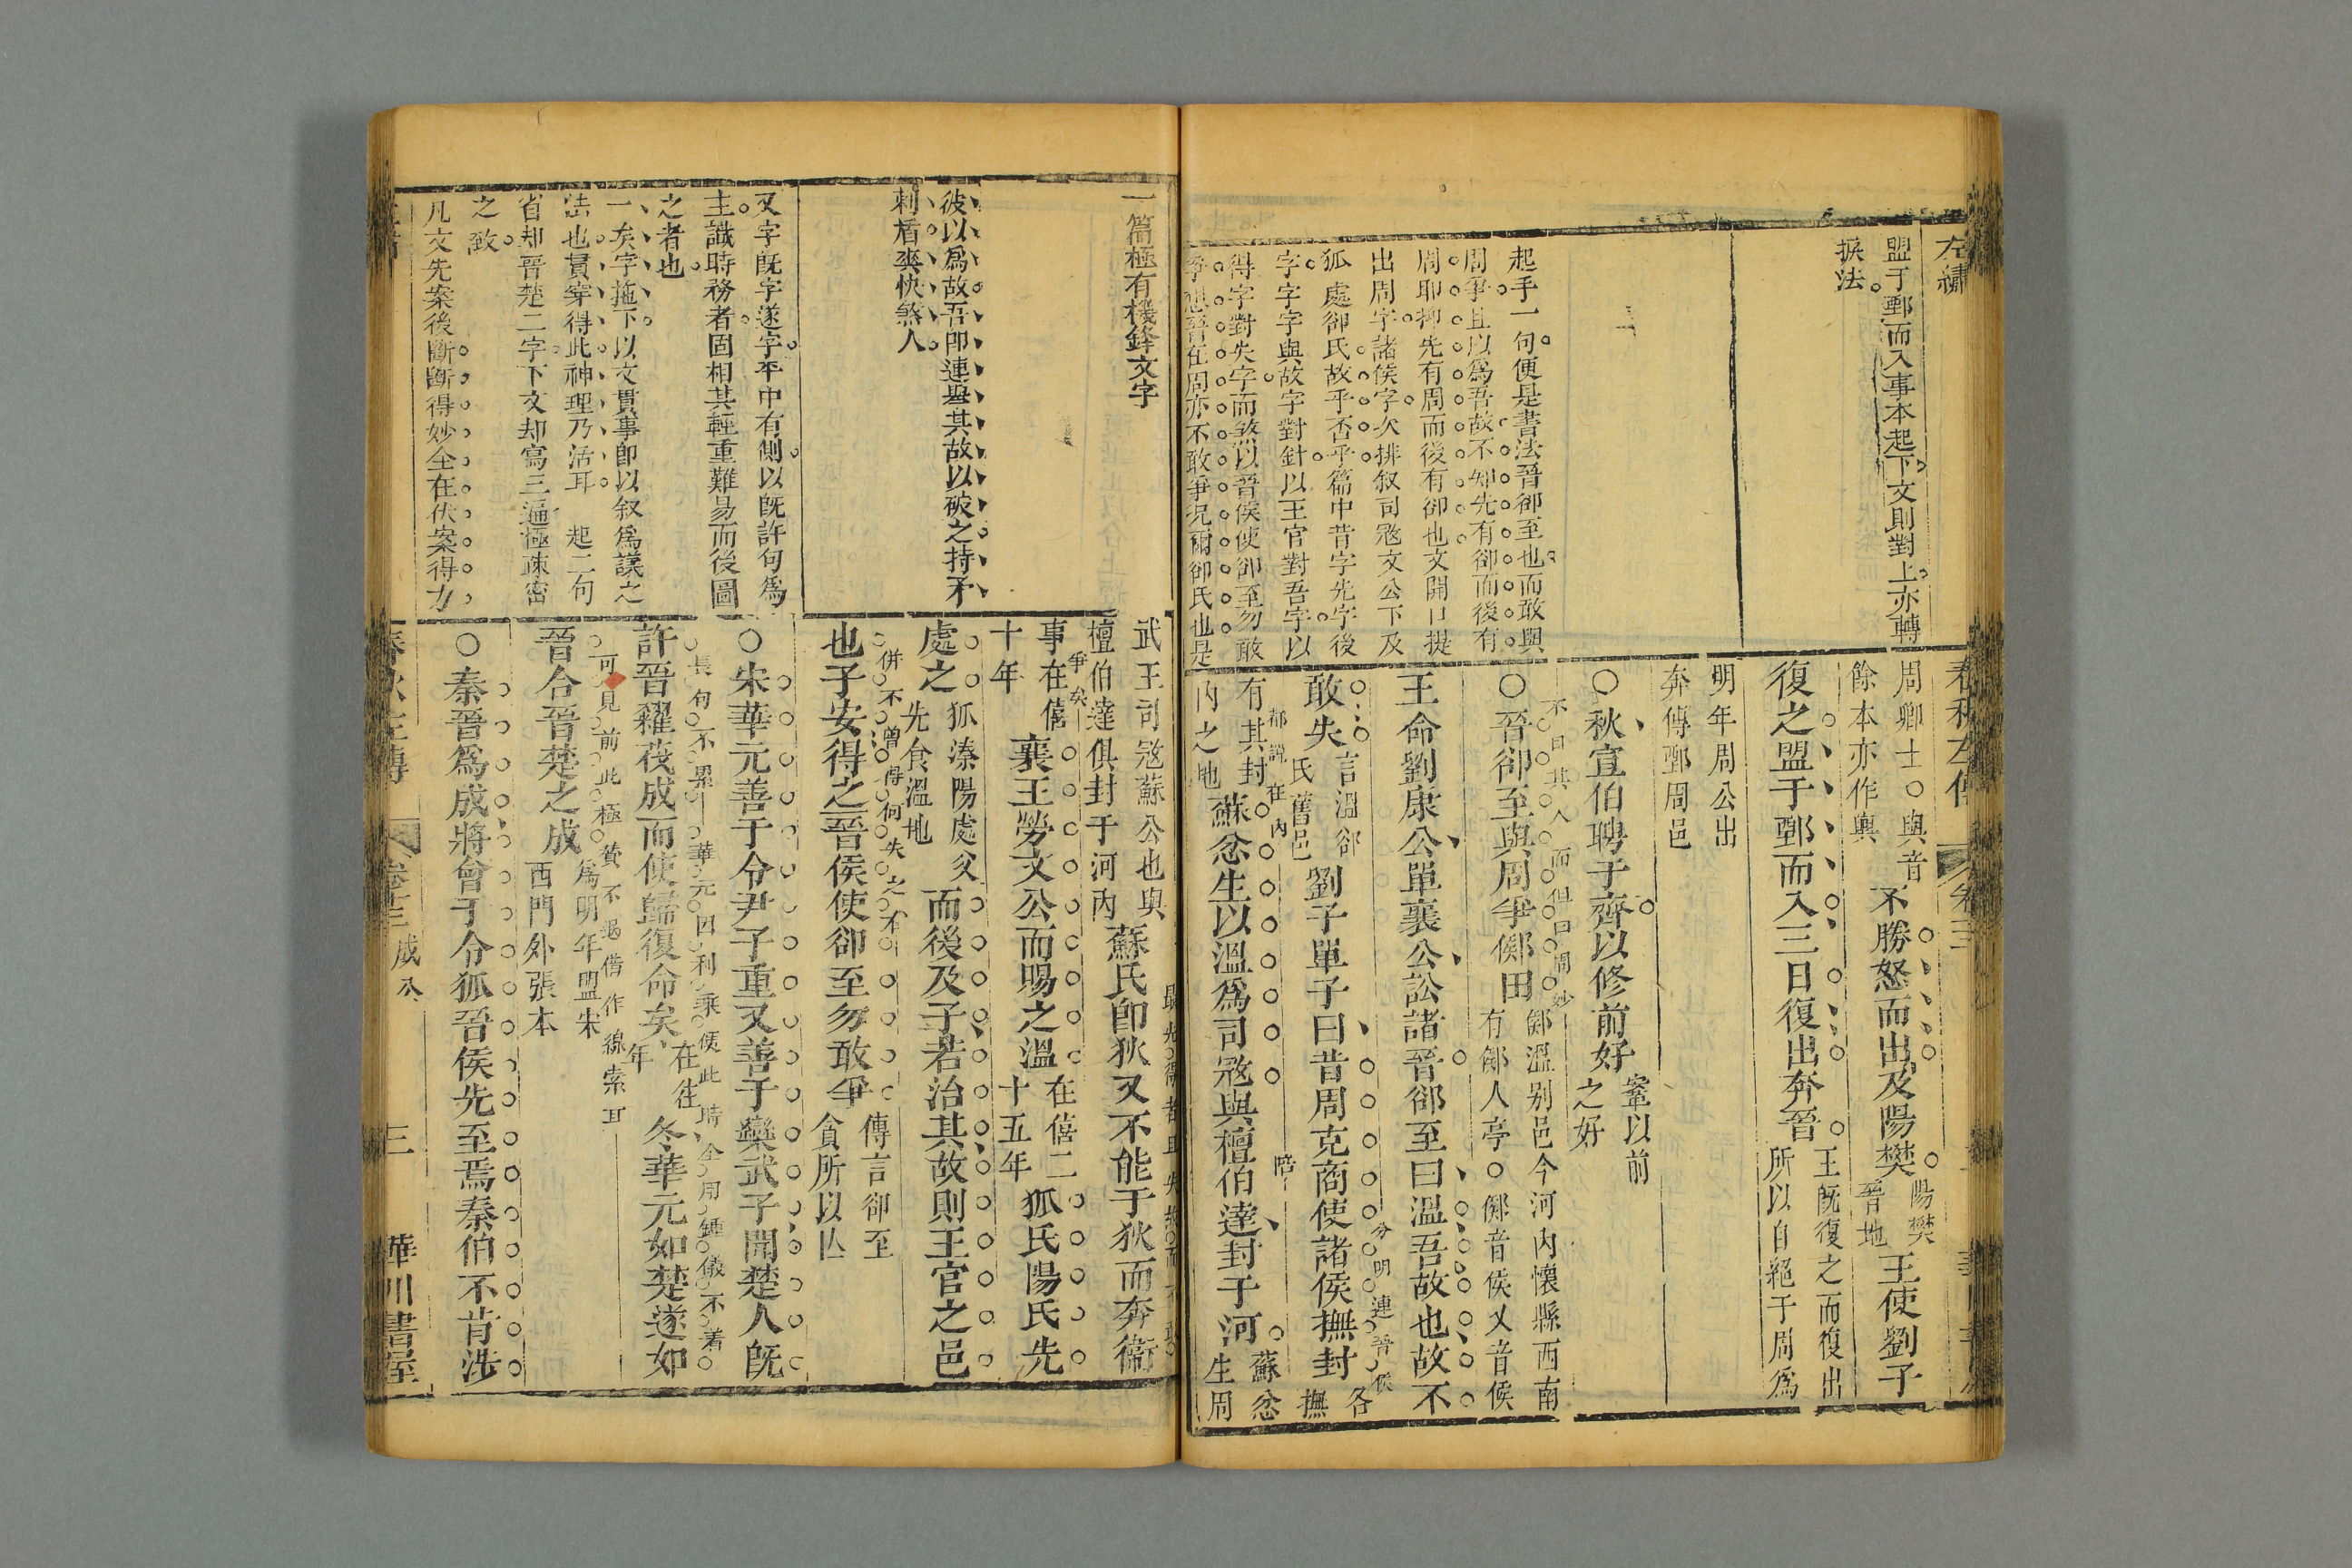 左繡
盟于鄄而入事本起下文則對上亦轉
捩法
起手一句便是書法晉郤至也而敢與
周爭且以爲吾故不知先有郤而後有
周耶抑先有周而後有郤也文開口提
出周字諸侯字次排叙司寇文公下及
狐處郤氏故乎否乎篇中昔字先字後
字字字與故字對針以王官對吾字以
得字對失字而煞以晉侯使郤至勿敢
爭想晉在周亦不敢爭况爾郤氏也是
春秋左傳
卷十三
周卿士○與音
餘本亦作輿
不勝怒而出及陽樊
陽樊
晉地
王使劉子
復之盟于鄄而入三日復出奔晉
王既復之而復出
所以自絕于周爲
明年周公出
奔傳鄄周邑
○秋宣伯聘于齊以修前好
鞌以前
之好
不曰其人而但曰周妙
○晉郤至與周爭鄇田
鄇溫別邑今河內懷縣西南
有鄇人亭○鄇音侯又音候
王命劉康公單襄公訟諸晉郤至曰溫吾故也故不
分明連晉侯
敢失
言溫郤
氏舊邑
劉子單子曰昔周克商使諸侯撫封
各
撫
有其封
內之地
都說在內
陪
蘇忿生以溫爲司寇與檀伯達封于河
蘇忿
生周
一篇極有機鋒文字
彼以爲故吾卽連與其故以破之持矛
刺盾爽快煞人
又字既字遂字平中有側以既許句爲
主識時務者固相其輕重難易而後圖
之者也
一矣字拖下以文貫事卽以叙爲議之
法也貫穿得此神理乃活耳　起二句
省却晉楚二字下文却寫三遍極疎密
之致
凡文先案後斷斷得妙全在伏案得力
武王司寇蘇公也與
檀伯達俱封于河內
蘇氏卽狄又不能于狄而奔衞
事在僖
十年
爭矣
襄王勞文公而賜之溫
在僖二
十五年
狐氏陽氏先
處之
狐溱陽處父
先食溫地
而後及子若治其故則王官之邑
併不曾得何失之不
也子安得之晉侯使郤至勿敢爭
傳言郤至
貪所以亾
○宋華元善于令尹子重又善于欒武子聞楚人既
長句不累
華元因利乘便此時全用鍾儀不著
許晉糴茷成而使歸復命矣
在往
年
冬華元如楚遂如
可見前此極贊不過借作線索耳
晉合晉楚之成
爲明年盟宋
西門外張本
○秦晉爲成將會于令狐晉侯先至焉秦伯不肯涉
春秋左傳
卷十三
成公
三
華川書屋